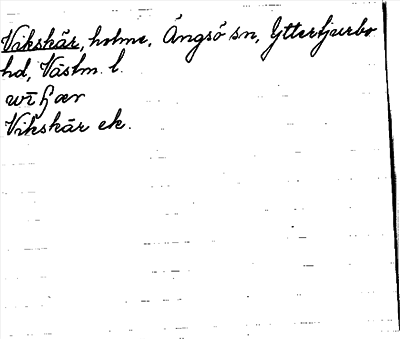 Vikskär, holme, Ängsö sn, Ytterfjurbo
hd, Västm. l.
Vikskär ek.